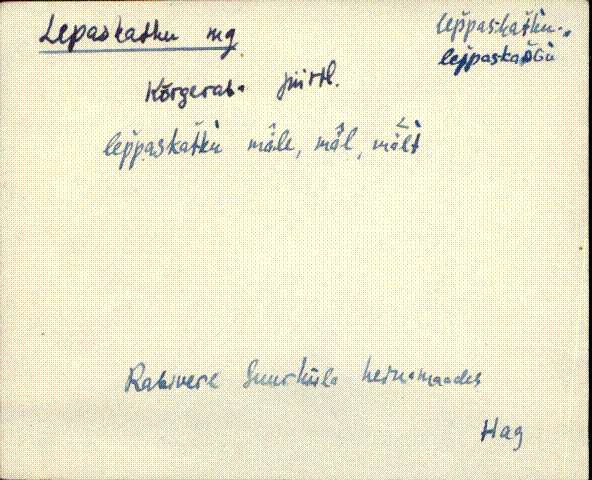 Lepaskatku mg
lep̆paskatkù..
lep̆paskaDGù
Kõrgerab. piirtl.
lep̆paskatkù mä̂le, mä̂l, mä̂lt
Rabivere Suurküla heinamaades
Hag